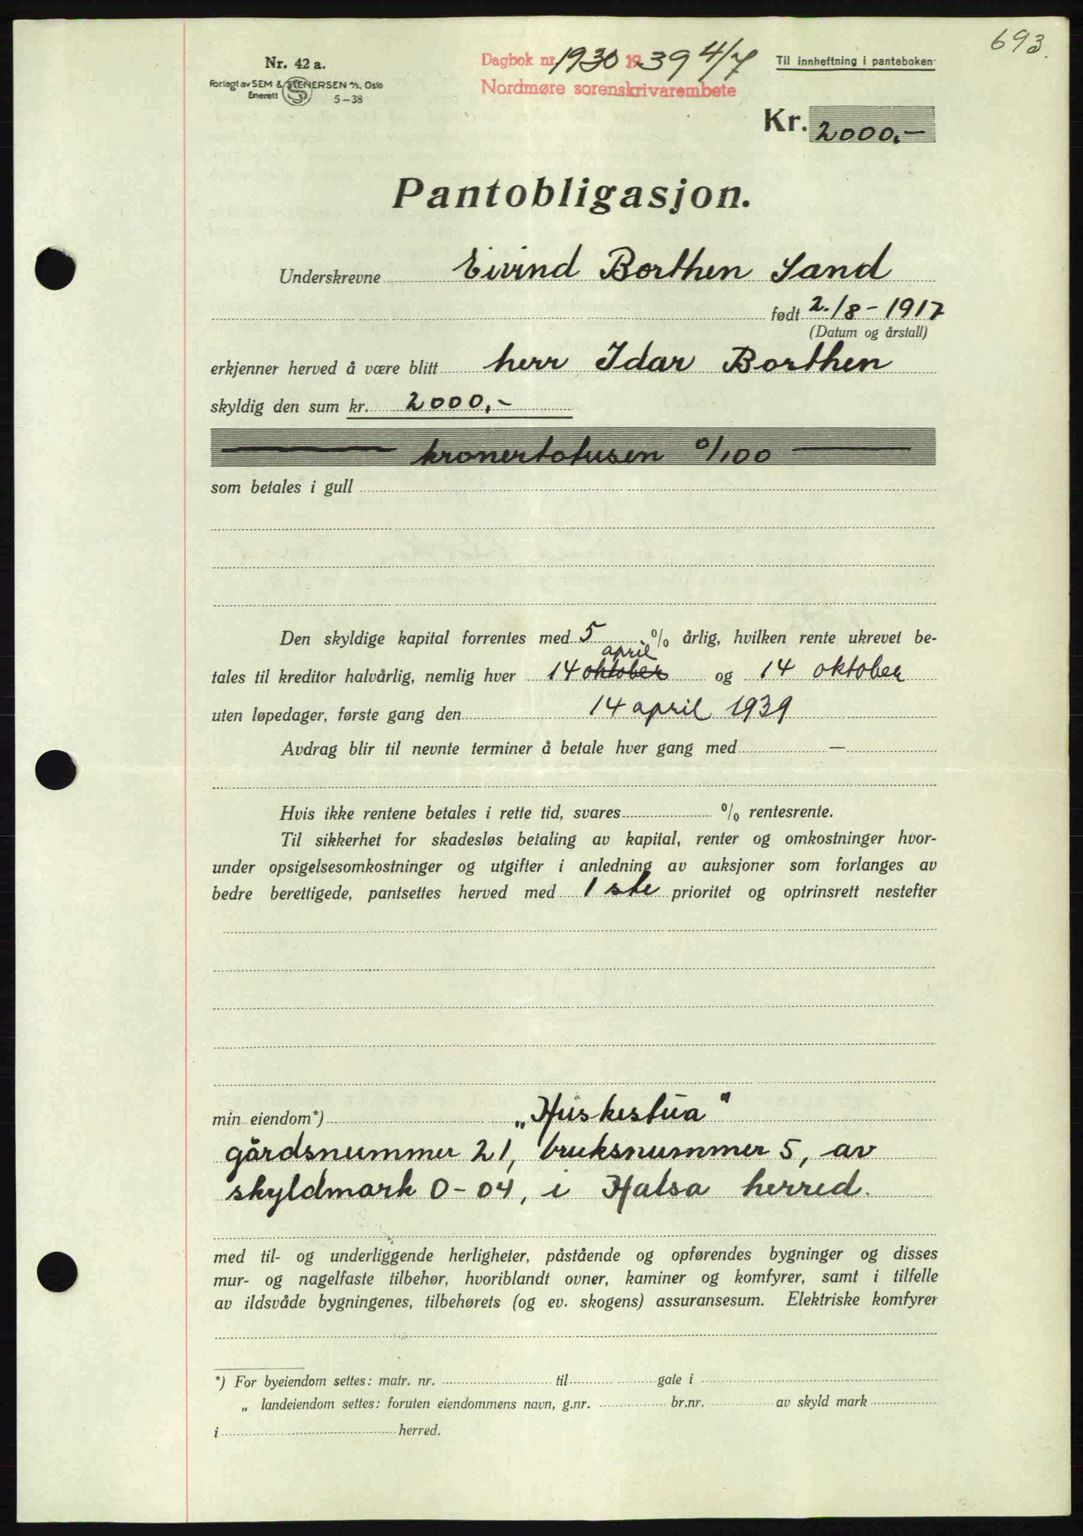 693
Nr. 42 a.
Forlagt av SEM & STENERSEN A/S, Oslo
Enerett 5-38
Dagbok nr. 1930 1939 4/7
Nordmøre sorenskrivarembete
Til innheftning i panteboken
Kr. 2000,-
Pantobligasjon.
Underskrevne Eivind Borthen Sand
født 2./8-1917
(Datum og årstall)
erkjenner herved å være blitt herr Idar Borthen
skyldig den sum kr. 2000,-
kronertotusen 0/100
som betales i gull
Den skyldige kapital forrentes med 5 % årlig, hvilken rente ukrevet be-
april
tales til kreditor halvårlig, nemlig hver 14 oktober og 14 oktober
uten løpedager, første gang den 14 april 1939
Avdrag blir til nevnte terminer å betale hver gang med —
Hvis ikke rentene betales i rette tid, svares % rentesrente.
Til sikkerhet for skadesløs betaling av kapital, renter og omkostninger hvor-
under opsigelsesomkostninger og utgifter i anledning av auksjoner som forlanges av
bedre berettigede, pantsettes herved med 1ste prioritet og optrinsrett nestefter
min eiendom*) "Huskestua"
gårdsnummer 21, bruksnummer 5, av
skyldmark 0-04, i Halsa herred.
med til- og underliggende herligheter, påstående og opførendes bygninger og disses
mur- og nagelfaste tilbehør, hvoriblandt ovner, kaminer og komfyrer, samt i tilfelle
av ildsvåde bygningenes, tilbehørets (og ev. skogens) assuransesum. Elektriske komfyrer
*) For byeiendom settes: matr. nr. til gate i
„ landeiendom settes: foruten eiendommens navn, g.nr. br.nr. av skyld mark
i herred.